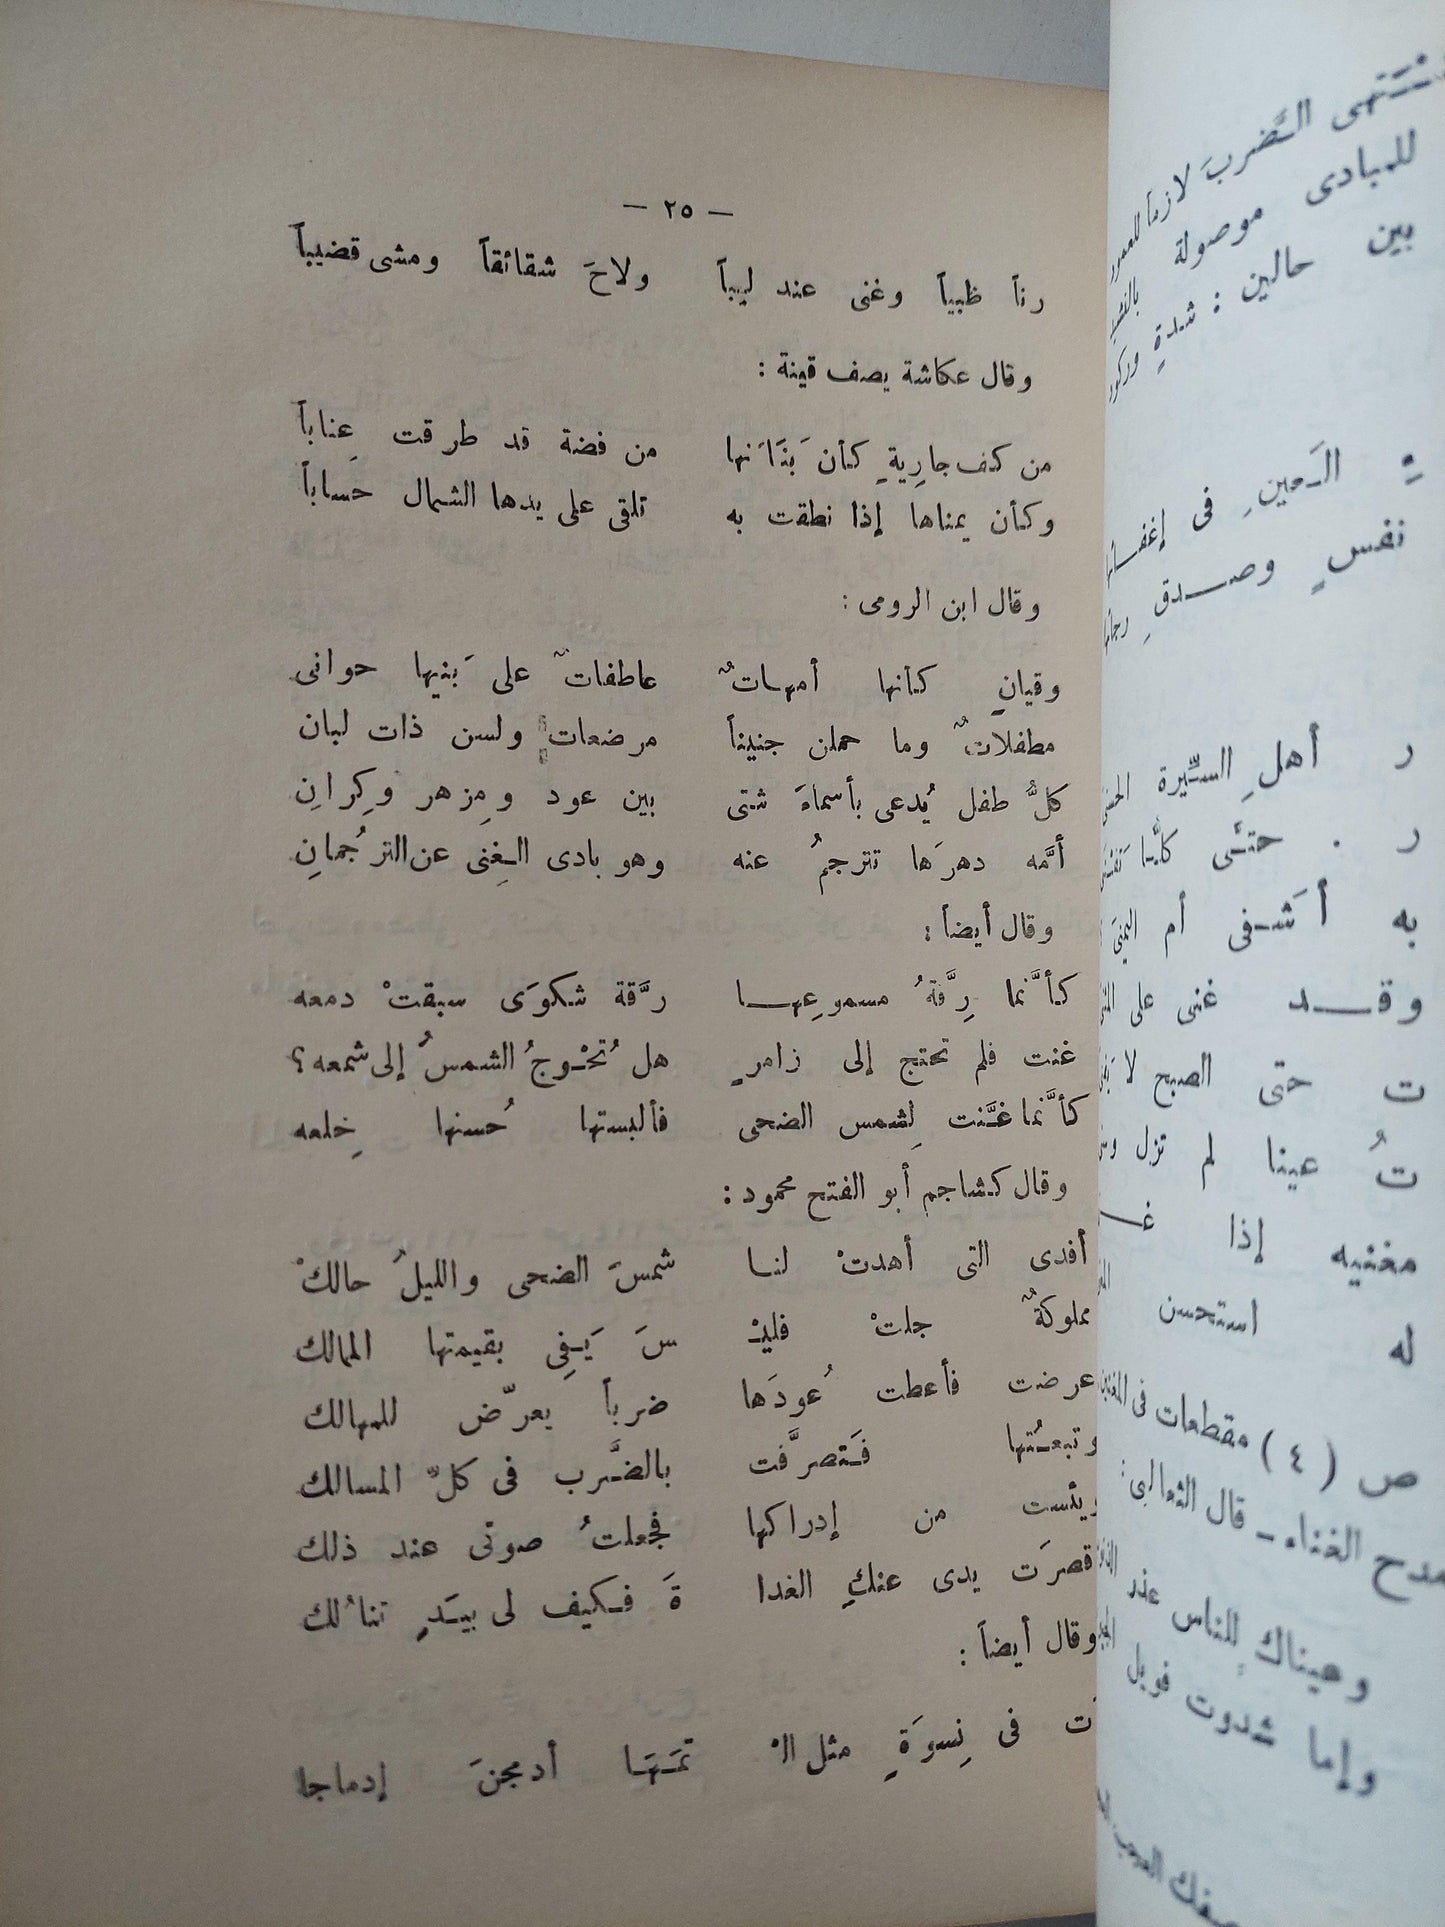 — ٢٥ —
رناً ظبياً وغنى عند ليباً ولاحَ شقائقاً ومشى قضيباً
وقال عكاشة يصف قينة :
من كف جارِيةٍ كأن بَنَانَها من فضة قد طرقت عِناباً
وكأن يمناها إذا نطقت به تلقى على يدها الشمال حَساباً
وقال ابن الرومى :
وقيانٍ كأنها أمهاتٌ عاطفاتٌ على بَنيها حوانى
مطفلاتٌ وما حملن جنيناً مرضعات ولسن ذات لبان
كلُّ طفل يُدعى بأسماءَ شتى بين عود ومِزهر وكِرانِ
أمَّه دهرَها تترجمُ عنه وهو بادى الغِنى عن الترجُمانِ
وقال أيضاً :
كأنَّما رِقَّةُ مسموعِها رقَّة شكوَى سبقتْ دمعه
غنت فلم تحتج إلى زامرٍ هل تُحْوجُ الشمسُ إلى شمعه ؟
كأنَّما غنَّت لِشمس الضحى فألبستها حُسنها خِلعه
وقال كشاجم أبو الفتح محمود :
أفدى التى أهدتْ لنا شمسَ الضحى والليلُ حالكْ
مملوكةٌ جلتْ فليْـ سَ يَفِى بقيمتها الممالك
عرضت فأعطت عُودَها ضرباً يعرّض للمهالك
وتبعتُها فَتصرَّفت بالضَّرب فى كلّ المسالك
ويئست من إدراكها فجعلتُ صوتى عند ذلك
قصرَت يدى عنكِ الغدا ةَ فكيف لى بيَدٍ تنالُك
وقال أيضاً :
فى نِسوَةٍ مثل الْـ ـمَهَا أدمجنَ إدماجا
الضربَ لازماً
للمبادى موصولة
بين حالين : شدةٍ
فى
نفسٍ وصدقِ
ر أهلِ السيِّرة
ر . حتَّى كلَّما
به أَشفى أم
وقد غنى على
ت حتى الصبح لا
تُ عينا لم تزل
مغنيه إذا
له استحسن
ص ( ٤ ) مقطعات فى
الغناء — قال الثعالبى :
وهيناك للناس عند
وإما شدوت فويل